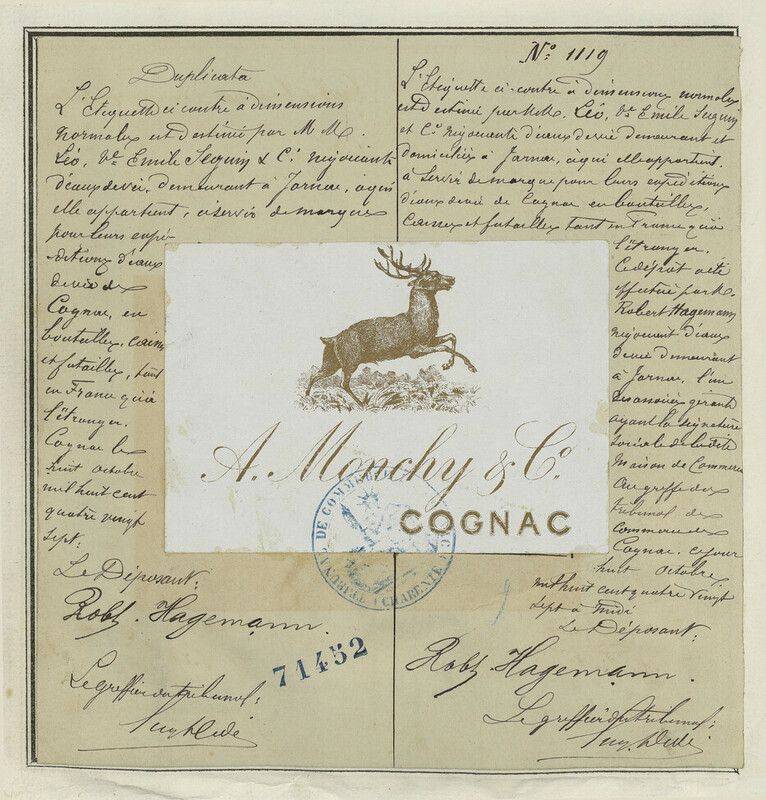 Duplicata
L'Etiquette ci contre à dimensions
normales est destinée par M M.
Léo, Vve Emile Seguin & Cie négociants
d'eaux de vie, demeurant à Jarnac, à qui
elle appartient, à servir de marque
pour leurs expé-
ditions d'eaux
de vie de
Cognac, en
bouteilles, caisses
et futailles, tant
en France qu'à
l'étranger.
Cognac le
huit octobre
mil huit cent
quatre vingt
sept:
Le Déposant:
Robt. Hagemann.
Le greffier du tribunal:
No 1119
L'Etiquette ci-contre à dimensions normales
est destinée par M.M. Léo, Vve Emile Seguin
et Cie négociants d'eaux de vie demeurant et
domiciliés à Jarnac, à qui elle appartient.
à servir de marque pour leurs expéditions
d'eaux de vie de Cognac en bouteilles,
caisses et futailles tant en France qu'à
l'étranger.
Ce dépôt a été
effectué par M.
Robert Hagemann
négociant d'eaux
de vie demeurant
à Jarnac, l'un
des associés gérants
ayant la signature
sociale de la dite
Maison de Commerce
au greffe du
tribunal de
Commerce de
Cognac. ce jour
huit octobre
mil huit cent quatre vingt
sept à midi
Le Déposant:
Robt Hagemann.
Le greffier du tribunal:
A. Monchy & Co.
COGNAC
TRIBUNAL DE COMMERCE
CHARENTE
71452